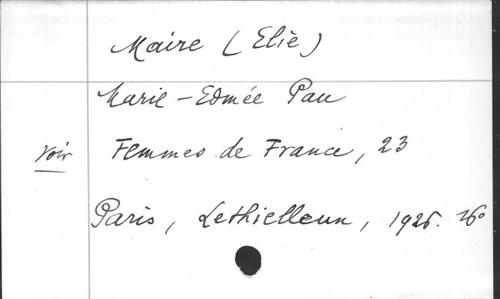 Maire (Elie)
Marie-Edmée Pau
voir Femmes de France, 23
Paris, Lethielleux, 1926. 16°